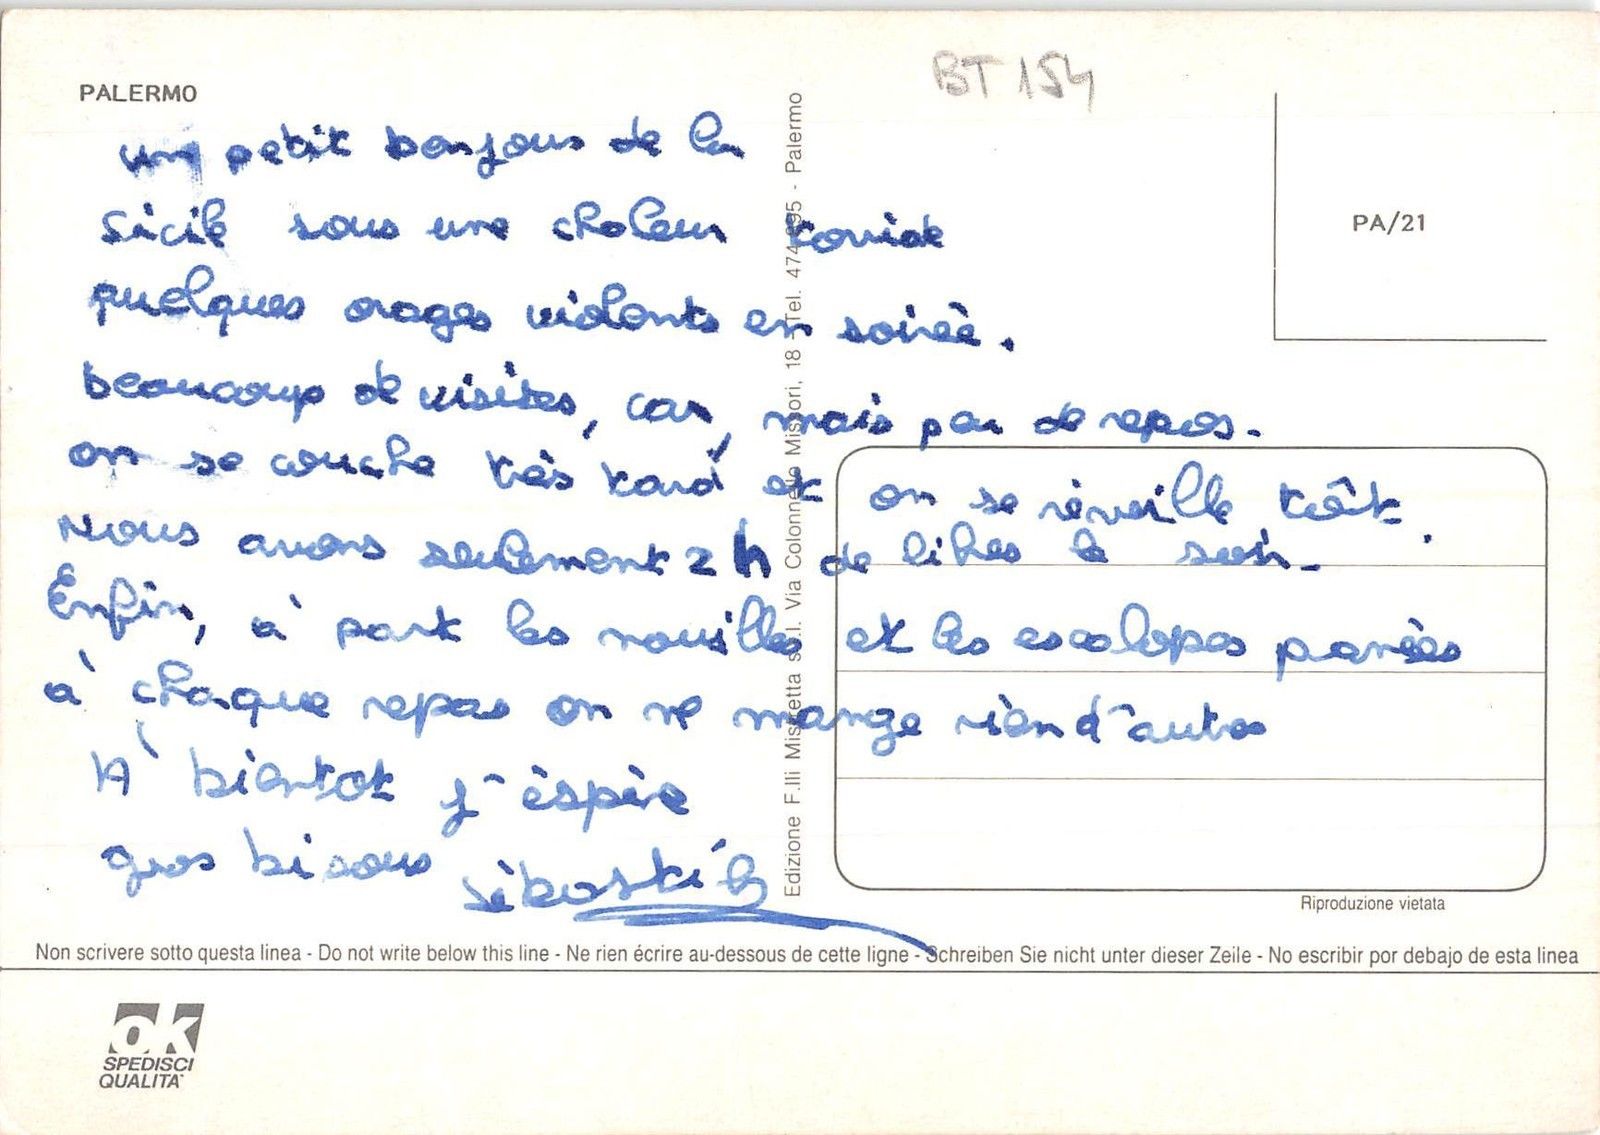 BT 154
PALERMO
un petit bonjour de la
Sicile sous une chaleur torride
quelques orages violents en soirée.
beaucoup de visites, car, mais peu de repos.
on se couche très tard et on se réveille tôt.
Nous avons seulement 2 h de libres le soir.
Enfin, à part les nouilles et les escalopes panées
à chaque repas on ne mange rien d'autre
A bientot j'éspère
gros bisous
PA/21
Edizione F.lli Misretta s.r.l. Via Colonnello Missori, 18 - Tel. 474 - Palermo
Riproduzione vietata
Non scrivere sotto questa linea - Do not write below this line - Ne rien écrire au-dessous de cette ligne - Schreiben Sie nicht unter dieser Zeile - No escribir por debajo de esta linea
OK
SPEDISCI
QUALITA'